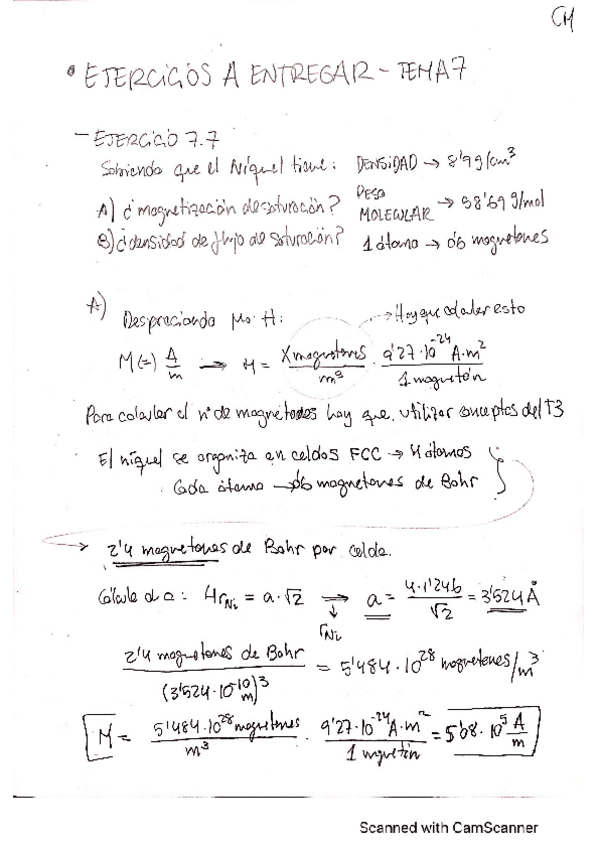 CM
• EJERCICIOS A ENTREGAR - TEMA 7
- EJERCICIO 7.7
Sabiendo que el Níquel tiene: DENSIDAD → 8'9 g/cm³
A) ¿magnetización de saturación? PESO MOLECULAR → 58'69 g/mol
B) ¿densidad de flujo de saturación? 1 átomo → 0'6 magnetones
A) Despreciando μ₀·H: → Hay que calcular esto
M (=) A/m → M = X magnetones/m³ · 9'27·10⁻²⁴ A·m²/1 magnetón
Para calcular el nº de magnetones hay que utilizar conceptos del T3
El níquel se organiza en celdas FCC → 4 átomos
Cada átomo → 0'6 magnetones de Bohr
→ 2'4 magnetones de Bohr por celda.
Cálculo de a: 4 rNi = a·√2 → a = 4·1'246/√2 = 3'524 Å
↓
rNi
2'4 magnetones de Bohr/(3'524·10⁻¹⁰ m)³ = 5'484·10²⁸ magnetones/m³
M = 5'484·10²⁸ magnetones/m³ · 9'27·10⁻²⁴ A·m²/1 magnetón = 5'08·10⁵ A/m
Scanned with CamScanner